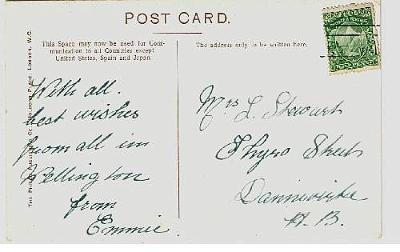 POST CARD.
This Space may now be used for Com-
munication to all Countries except
United States, Spain and Japan.
The address only to be written here.
With all.
best wishes
from all in
Wellington
from
Emmie
Mrs L. Stewart
Thyra Street
Dannevirke
H.B.